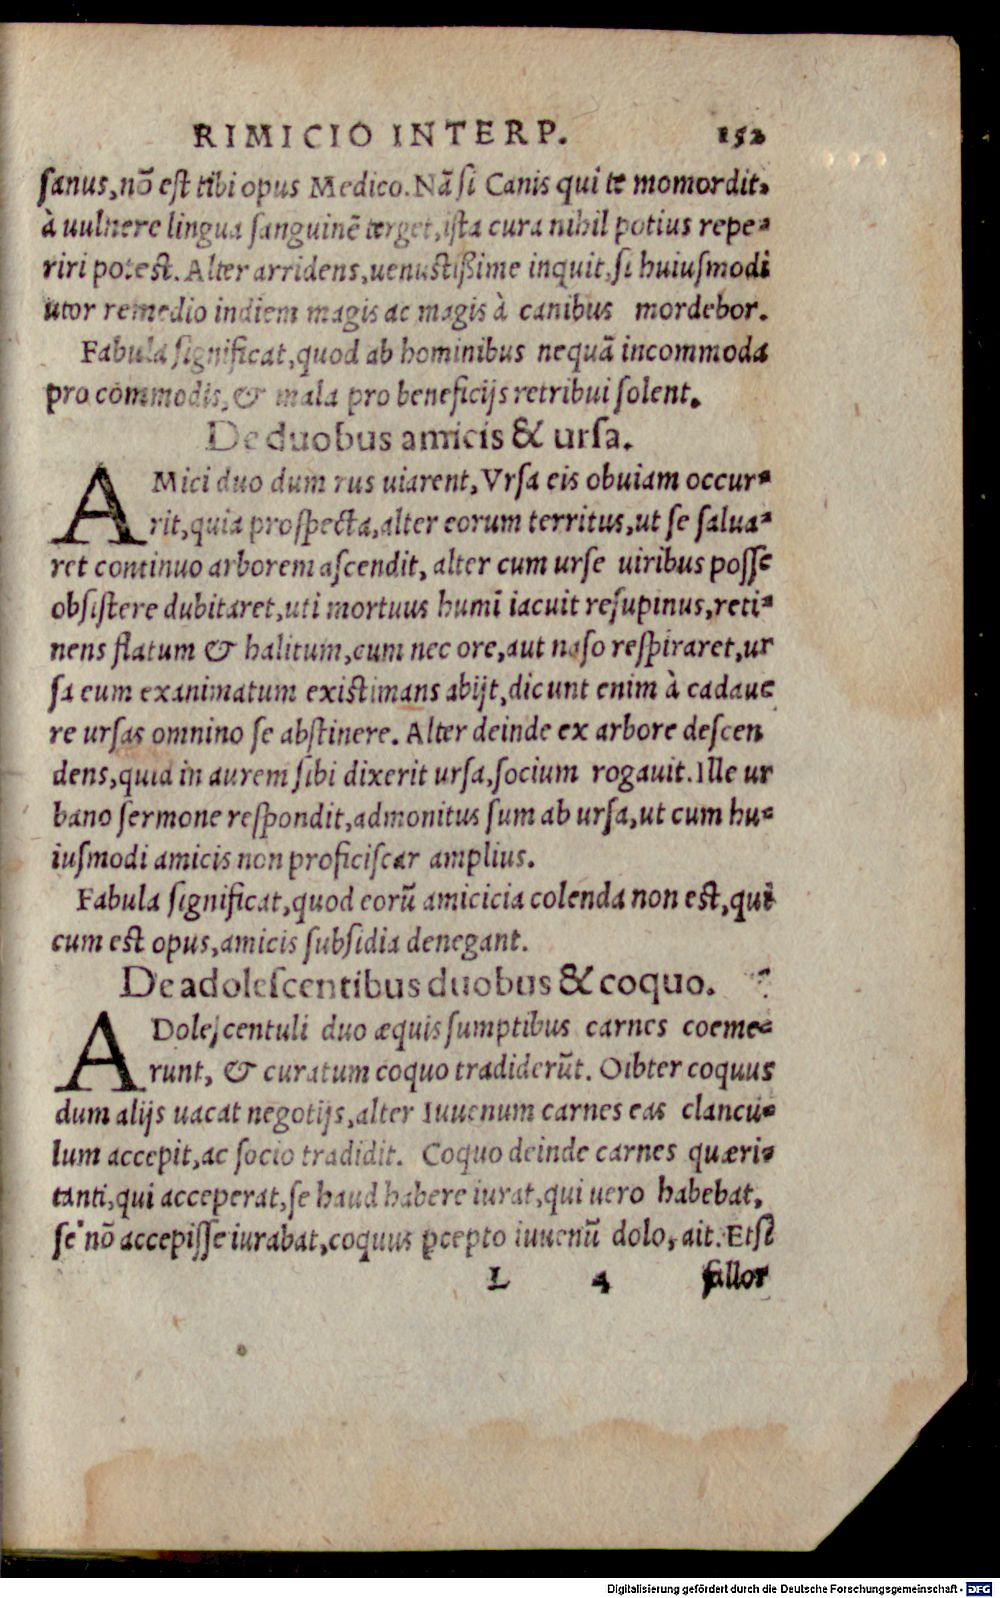 RIMICIO INTERP. 152
sanus, nõ est tibi opus Medico. Nã si Canis qui te momordit,
à uulnere lingua sanguinẽ terget, ista cura nihil potius repe-
riri potest. Alter arridens, uenustißime inquit, si huiusmodi
utor remedio indiem magis ac magis à canibus mordebor.
Fabula significat, quod ab hominibus nequã incommoda
pro commodis, & mala pro beneficijs retribui solent.
De duobus amicis & ursa.
AMici duo dum rus uiarent, Vrsa eis obuiam occur-
rit, quia prospecta, alter eorum territus, ut se salua-
ret continuo arborem ascendit, alter cum urse uiribus posse
obsistere dubitaret, uti mortuus humi iacuit resupinus, reti-
nens flatum & halitum, cum nec ore, aut naso respiraret, ur
sa eum exanimatum existimans abijt, dicunt enim à cadaue
re ursas omnino se abstinere. Alter deinde ex arbore descen
dens, quid in aurem sibi dixerit ursa, socium rogauit. Ille ur
bano sermone respondit, admonitus sum ab ursa, ut cum hu-
iusmodi amicis non proficiscar amplius.
Fabula significat, quod eorũ amicicia colenda non est, qui
cum est opus, amicis subsidia denegant.
De adolescentibus duobus & coquo.
ADolescentuli duo æquis sumptibus carnes coeme-
runt, & curatum coquo tradiderũt. Oibter coquus
dum alijs uacat negotijs, alter Iuuenum carnes eas clancu-
lum accepit, ac socio tradidit. Coquo deinde carnes quæri-
tanti, qui acceperat, se haud habere iurat, qui uero habebat,
se nõ accepisse iurabat, coquus ꝑcepto iuuenũ dolo, ait. Etsi
L 4 fallor
Digitalisierung gefördert durch die Deutsche Forschungsgemeinschaft - DFG